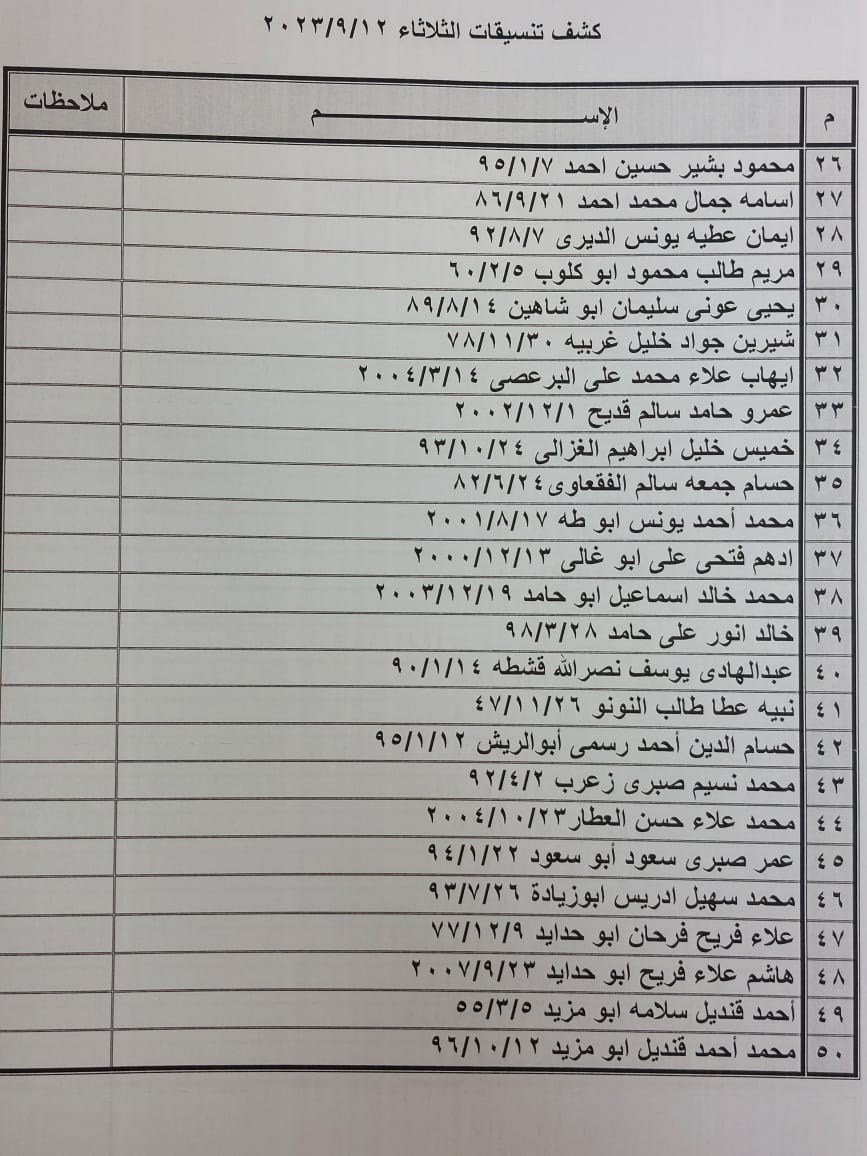 كشف تنسيقات الثلاثاء ٢٠٢٣/٩/١٢
م الإســـــــــم ملاحظات
٢٦ محمود بشير حسين احمد ٩٥/١/٧
٢٧ اسامه جمال محمد احمد ٨٦/٩/٢١
٢٨ ايمان عطيه يونس الديرى ٩٢/٨/٧
٢٩ مريم طالب محمود ابو كلوب ٦٠/٢/٥
٣٠ يحيى عونى سليمان ابو شاهين ٨٩/٨/١٤
٣١ شيرين جواد خليل غربيه ٧٨/١١/٣٠
٣٢ ايهاب علاء محمد على البرعصى ٢٠٠٤/٣/١٤
٣٣ عمرو حامد سالم قديح ٢٠٠٢/١٢/١
٣٤ خميس خليل ابراهيم الغزالى ٩٣/١٠/٢٤
٣٥ حسام جمعه سالم الفقعاوى ٨٢/٦/٢٤
٣٦ محمد أحمد يونس ابو طه ٢٠٠١/٨/١٧
٣٧ ادهم فتحى على ابو غالى ٢٠٠٠/١٢/١٣
٣٨ محمد خالد اسماعيل ابو حامد ٢٠٠٣/١٢/١٩
٣٩ خالد انور على حامد ٩٨/٣/٢٨
٤٠ عبدالهادى يوسف نصرالله قشطه ٩٠/١/١٤
٤١ نبيه عطا طالب النونو ٤٧/١١/٢٦
٤٢ حسام الدين أحمد رسمى أبوالريش ٩٥/١/١٢
٤٣ محمد نسيم صبرى زعرب ٩٢/٤/٢
٤٤ محمد علاء حسن العطار ٢٠٠٤/١٠/٢٣
٤٥ عمر صبرى سعود أبو سعود ٩٤/١/٢٢
٤٦ محمد سهيل ادريس ابوزيادة ٩٣/٧/٢٦
٤٧ علاء فريح فرحان ابو حدايد ٧٧/١٢/٩
٤٨ هاشم علاء فريح ابو حدايد ٢٠٠٧/٩/٢٣
٤٩ أحمد قنديل سلامه ابو مزيد ٥٥/٣/٥
٥٠ محمد أحمد قنديل ابو مزيد ٩٦/١٠/١٢